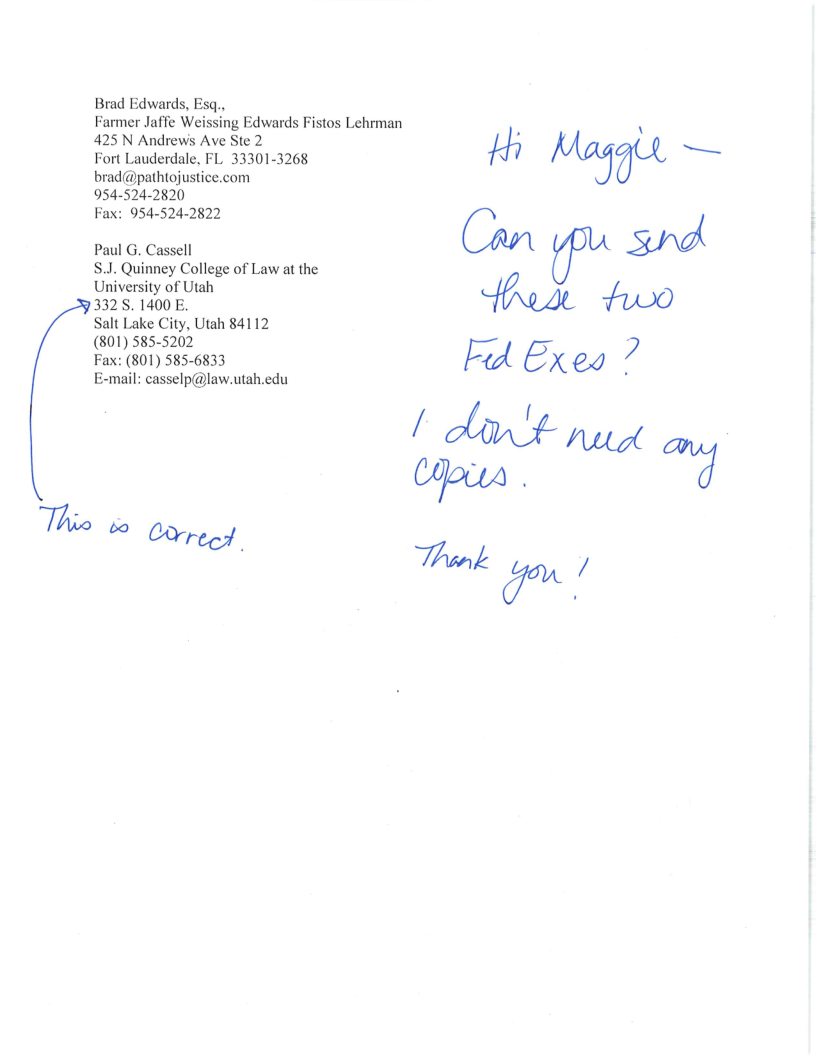 Brad Edwards, Esq.,
Farmer Jaffe Weissing Edwards Fistos Lehrman
425 N Andrews Ave Ste 2
Fort Lauderdale, FL 33301-3268
brad@pathtojustice.com
954-524-2820
Fax: 954-524-2822
Paul G. Cassell
S.J. Quinney College of Law at the
University of Utah
332 S. 1400 E.
Salt Lake City, Utah 84112
(801) 585-5202
Fax: (801) 585-6833
E-mail: casselp@law.utah.edu
This is correct.
Hi Maggie —
Can you send
these two
FedExes?
I don't need any
copies.
Thank you!